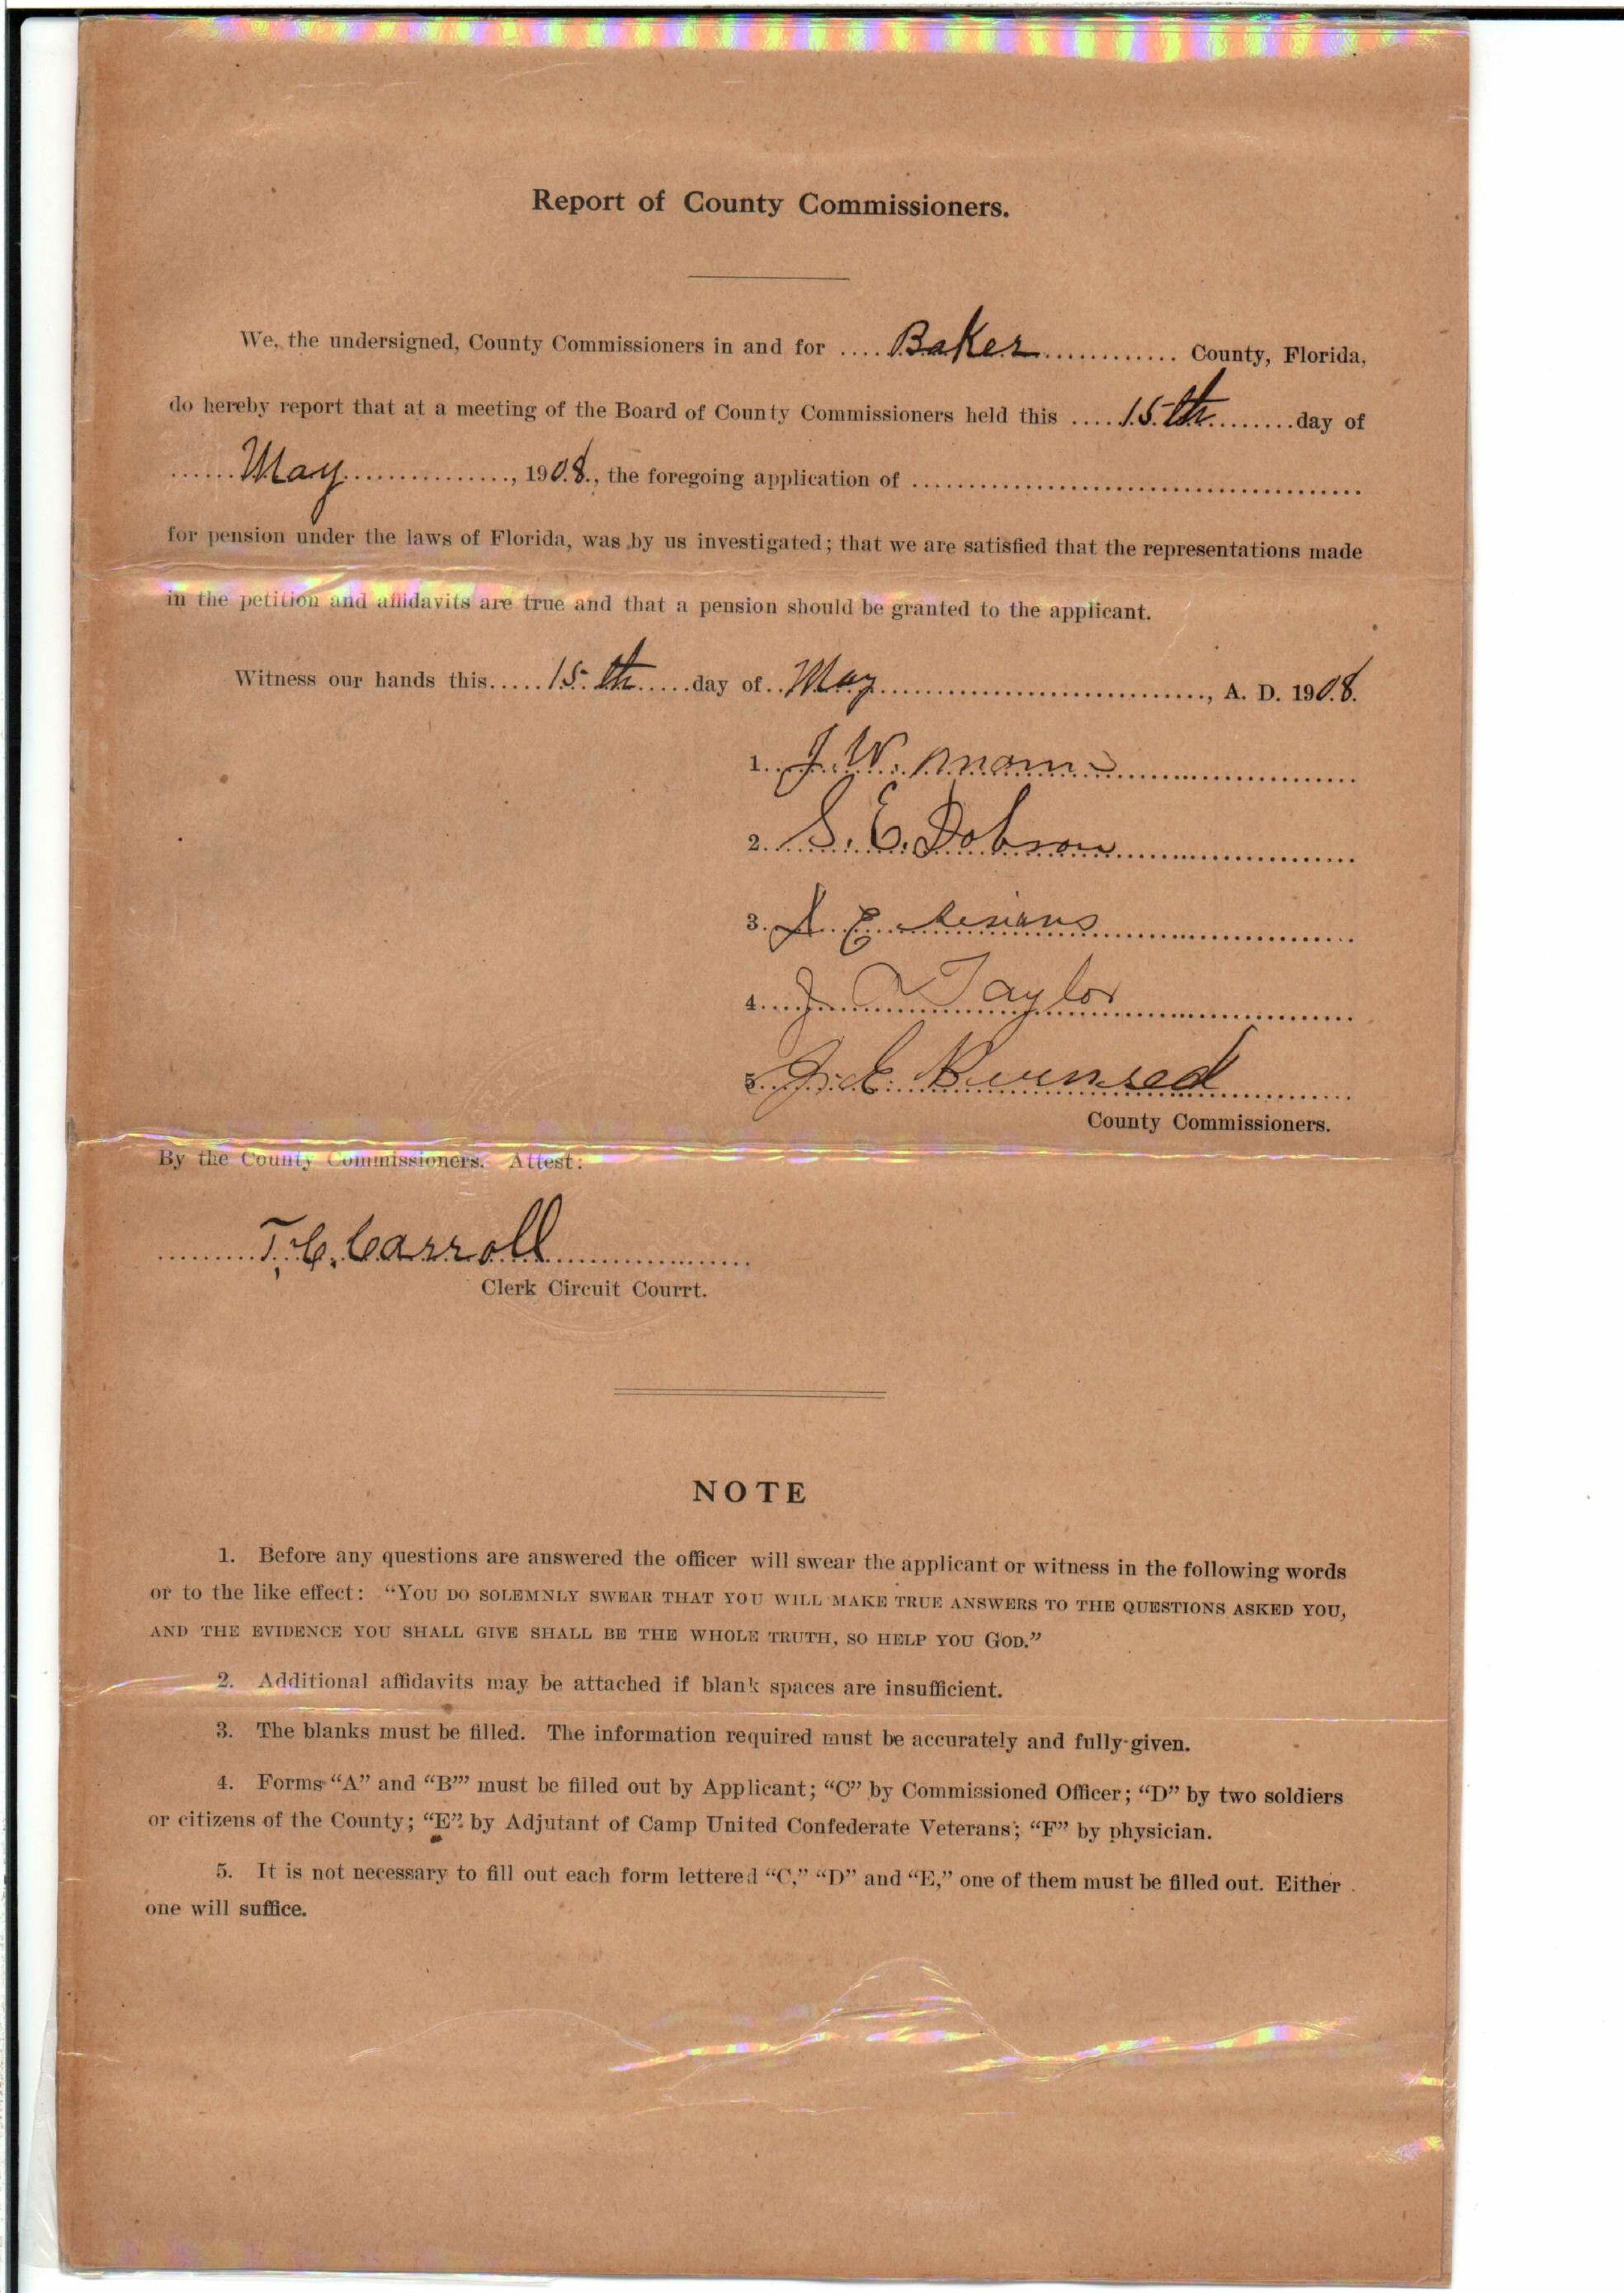 Report of County Commissioners.
We, the undersigned, County Commissioners in and for .... Baker ............ County, Florida,
do hereby report that at a meeting of the Board of County Commissioners held this .... 15th ........ day of
...... May ..............., 1908., the foregoing application of ..............................................
for pension under the laws of Florida, was by us investigated; that we are satisfied that the representations made
in the petition and affidavits are true and that a pension should be granted to the applicant.
Witness our hands this ..... 15th ..... day of .. May ................................., A. D. 1908.
1. J. W.
2. S. E. Dobson
3. E.
4. J. Taylor
5. Burnsed
County Commissioners.
By the County Commissioners. Attest:
T. C. Carroll
Clerk Circuit Courrt.
NOTE
1. Before any questions are answered the officer will swear the applicant or witness in the following words
or to the like effect: “YOU DO SOLEMNLY SWEAR THAT YOU WILL MAKE TRUE ANSWERS TO THE QUESTIONS ASKED YOU,
AND THE EVIDENCE YOU SHALL GIVE SHALL BE THE WHOLE TRUTH, SO HELP YOU GOD.”
2. Additional affidavits may be attached if blank spaces are insufficient.
3. The blanks must be filled. The information required must be accurately and fully given.
4. Forms “A” and “B”’ must be filled out by Applicant; “C” by Commissioned Officer; “D” by two soldiers
or citizens of the County; “E” by Adjutant of Camp United Confederate Veterans; “F” by physician.
5. It is not necessary to fill out each form lettered “C,” “D” and “E,” one of them must be filled out. Either
one will suffice.